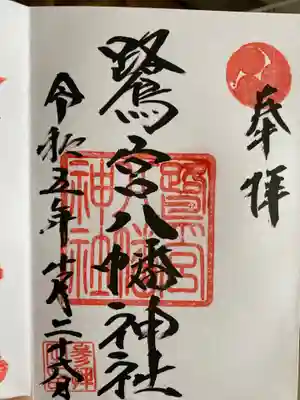 奉拝
鷺宮八幡神社
令和五年十月二十六日
鷺宮
八幡
神社